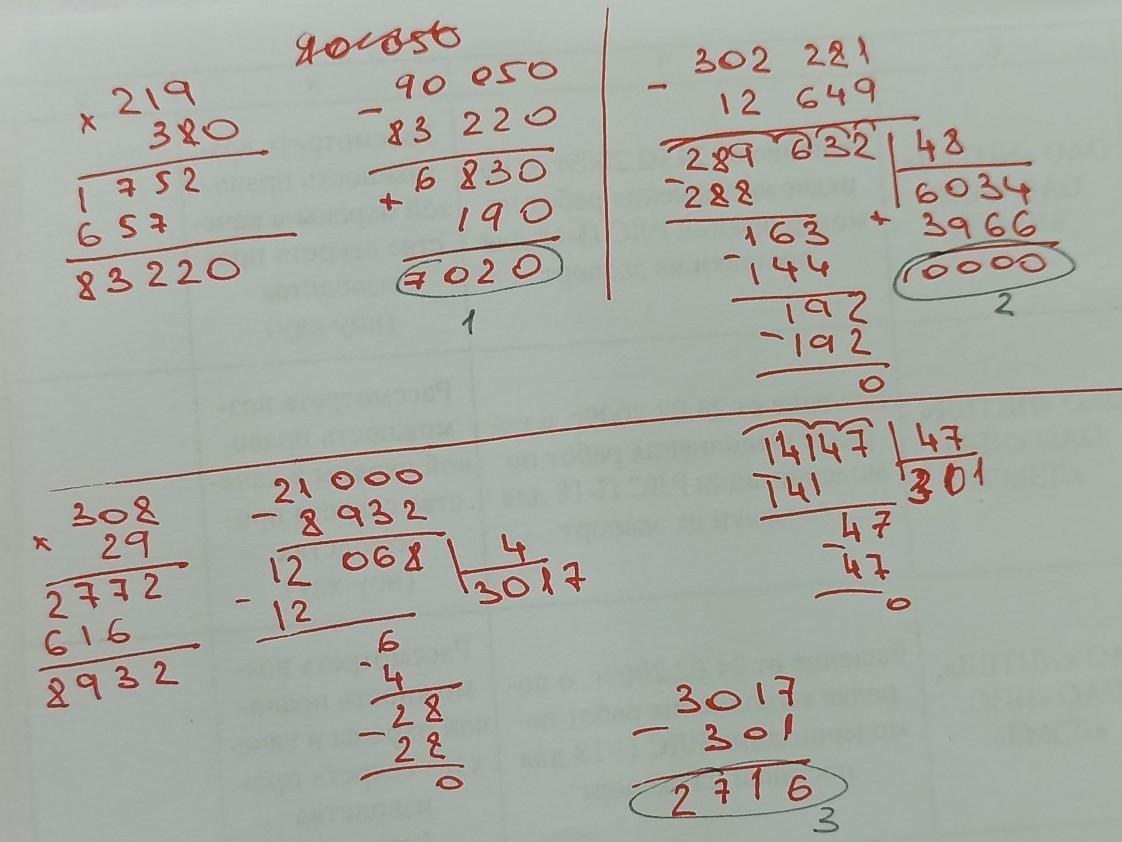 90 050
× 219
380
1 752
657
83220
- 90 050
83 220
6 830
+ 190
7020
1
- 302 281
12 649
289 632 | 48
- 288
6034
+ 3966
10000
2
163
- 144
192
- 192
0
308
× 29
2772
616
8932
- 21 000
8 932
12 068 | 4
3017
- 12
6
- 4
28
- 28
0
14147 | 47
- 141
301
47
- 47
0
3017
- 301
2716
3